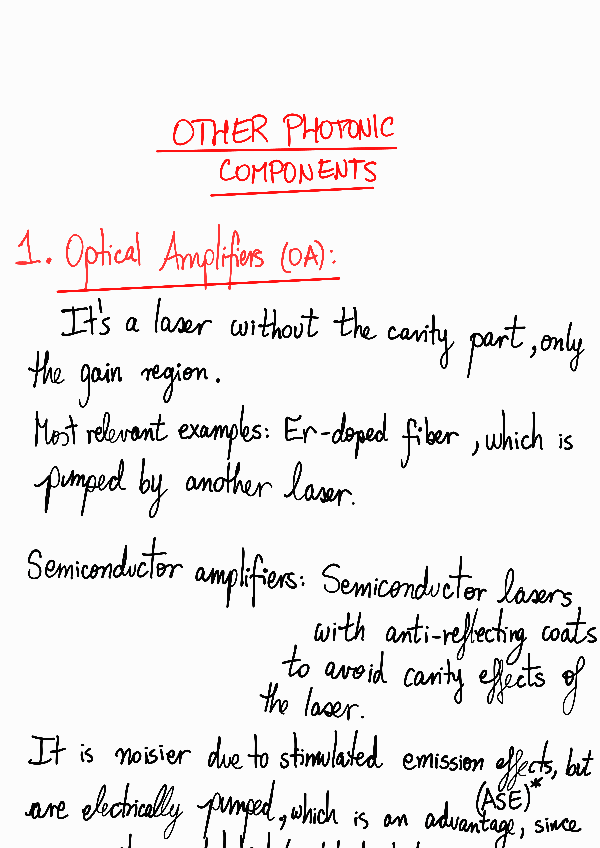 OTHER PHOTONIC
COMPONENTS
1. Optical Amplifiers (OA):
It's a laser without the cavity part, only
the gain region.
Most relevant examples: Er-doped fiber, which is
pumped by another laser.
Semiconductor amplifiers: Semiconductor lasers
with anti-reflecting coats
to avoid cavity effects of
the laser.
It is noisier due to stimulated emission effects, but
(ASE)*
are electrically pumped, which is an advantage, since